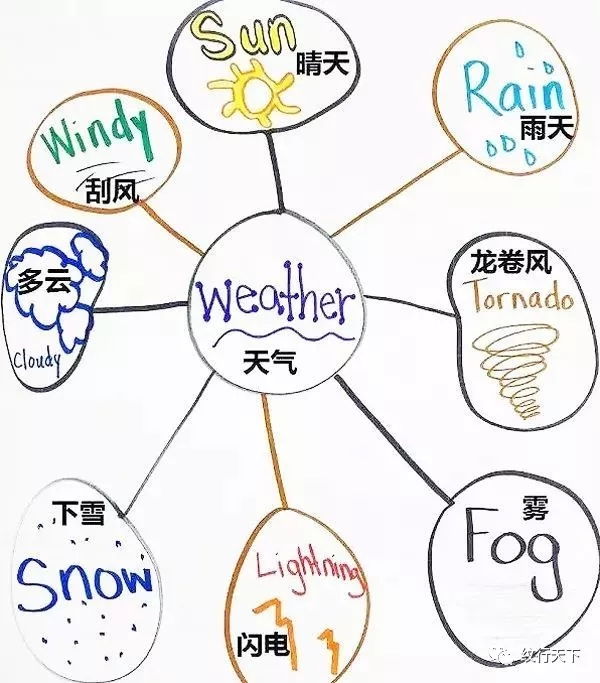 Sun
晴天
Rain
雨天
Windy
刮风
龙卷风
Tornado
多云
Cloudy
Weather
天气
下雪
Snow
Lightning
闪电
雾
Fog
纹行天下